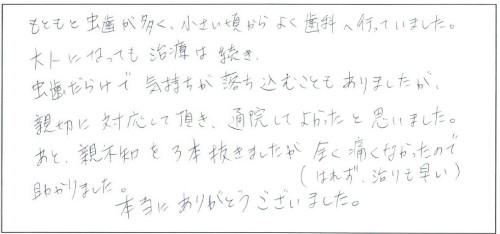 もともと虫歯が多く、小さい頃からよく歯科へ行っていました。
大人になっても治療は続き、
虫歯だらけで気持ちが落ち込むこともありましたが、
親切に対応して頂き、通院してよかったと思いました。
あと、親不知を3本抜きましたが全く痛くなかったので
(はれず、治りも早い)
助かりました。
本当にありがとうございました。